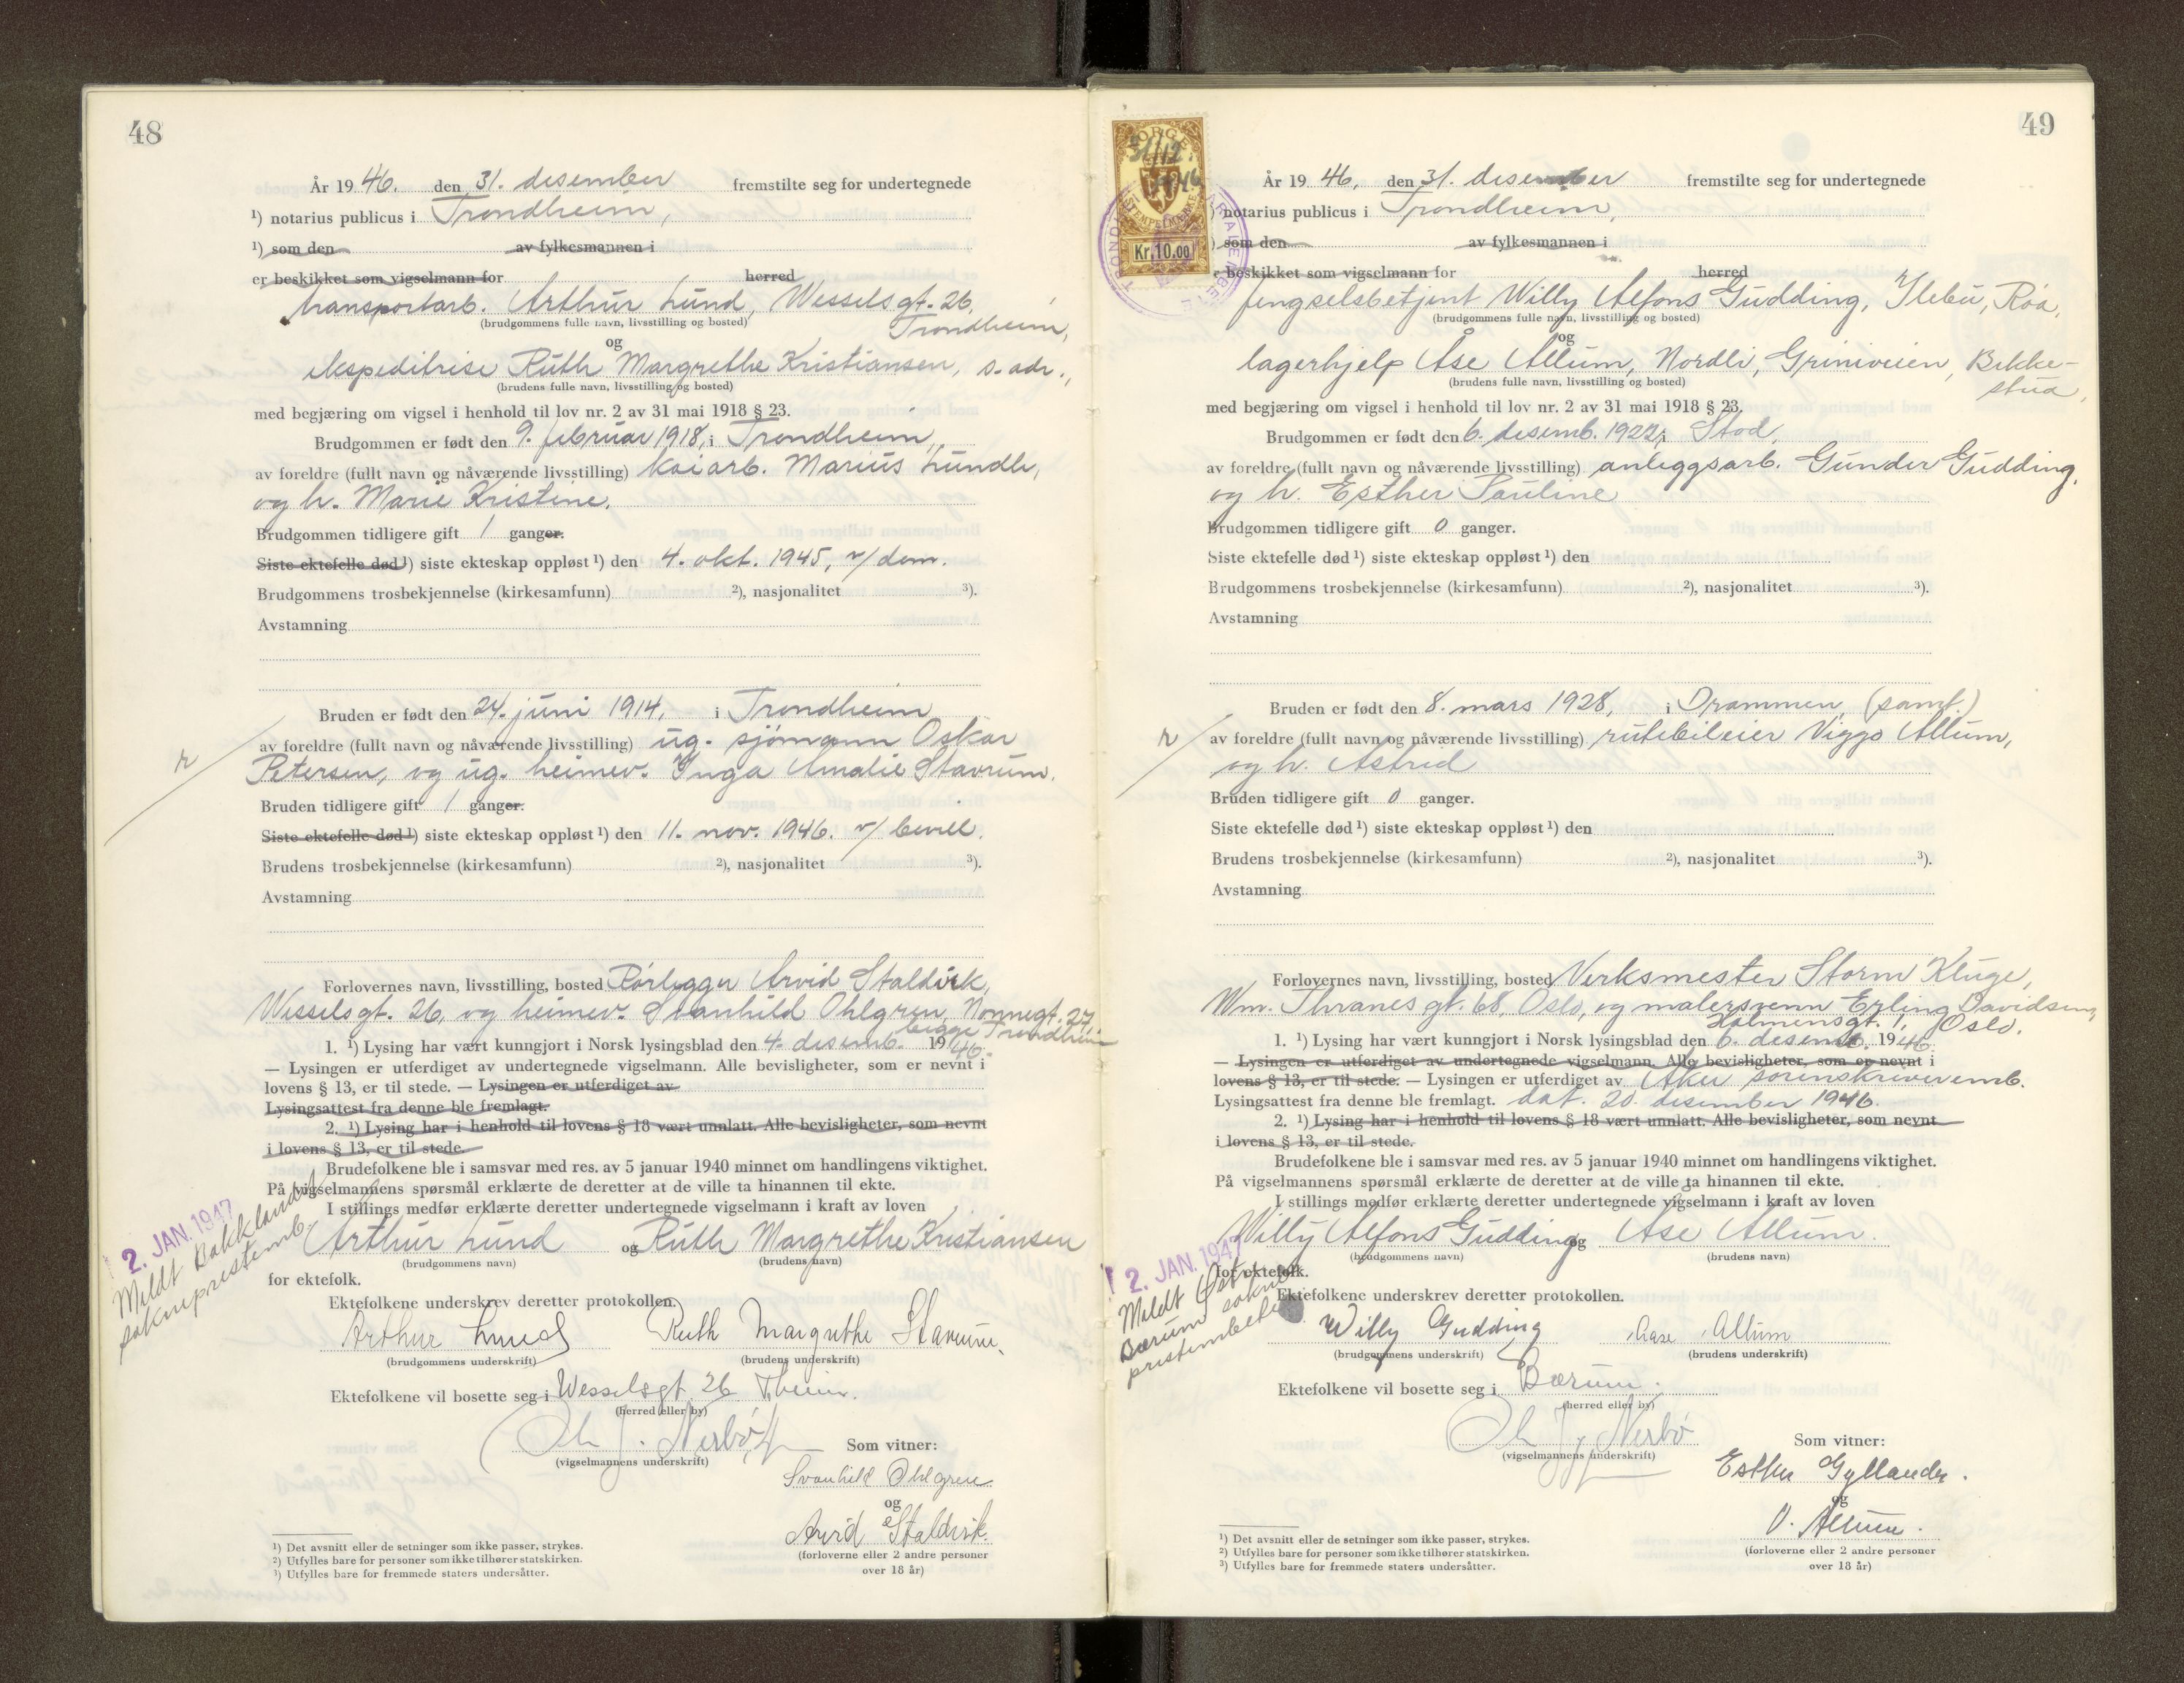 48
År 1946. den 31. desember fremstilte seg for undertegnede
¹) notarius publicus i Trondheim,
¹) som den av fylkesmannen i
er beskikket som vigselmann for herred
transportarb. Arthur Lund, Wesselsgt. 26,
(brudgommens fulle navn, livsstilling og bosted)
Trondheim,
og
ekspeditrise Ruth Margrethe Kristiansen, s. adr.,
(brudens fulle navn, livsstilling og bosted)
med begjæring om vigsel i henhold til lov nr. 2 av 31 mai 1918 § 23.
Brudgommen er født den 9. februar 1918, i Trondheim,
av foreldre (fullt navn og nåværende livsstilling) kaiarb. Marius Lund
og h. Marie Kristine.
Brudgommen tidligere gift 1 ganger.
Siste ektefelle død ¹) siste ekteskap oppløst ¹) den 4. okt. 1945, v/ dom.
Brudgommens trosbekjennelse (kirkesamfunn) ²), nasjonalitet ³).
Avstamning
Bruden er født den 24. juni 1914, i Trondheim
av foreldre (fullt navn og nåværende livsstilling) ug. sjømann Oskar
Petersen, og ug. heimev. Inga Amalie Stavrum.
Bruden tidligere gift 1 ganger.
Siste ektefelle død ¹) siste ekteskap oppløst ¹) den 11. nov. 1946. v/ bevill.
Brudens trosbekjennelse (kirkesamfunn) ²), nasjonalitet ³).
Avstamning
Forlovernes navn, livsstilling, bosted Rørlegger Arvid Staldvik,
Wesselsgt. 26, og heimev. Svanhild Ohlgren, Nonnegt. 27,
begge Trondheim
1. ¹) Lysing har vært kunngjort i Norsk lysingsblad den 4. desemb. 1946.
— Lysingen er utferdiget av undertegnede vigselmann. Alle bevisligheter, som er nevnt i
lovens § 13, er til stede. — Lysingen er utferdiget av
Lysingsattest fra denne ble fremlagt.
2. ¹) Lysing har i henhold til lovens § 18 vært unnlatt. Alle bevisligheter, som nevnt
i lovens § 13, er til stede.
Brudefolkene ble i samsvar med res. av 5 januar 1940 minnet om handlingens viktighet.
På vigselmannens spørsmål erklærte de deretter at de ville ta hinannen til ekte.
I stillings medfør erklærte deretter undertegnede vigselmann i kraft av loven
2. JAN. 1947
Meldt Bakklandet
sokneprestemb.
Arthur Lund og Ruth Margrethe Kristiansen
(brudgommens navn) (brudens navn)
for ektefolk.
Ektefolkene underskrev deretter protokollen.
Arthur Lund Ruth Margrethe Stavrum.
(brudgommens underskrift) (brudens underskrift)
Ektefolkene vil bosette seg i Wesselsgt 26 T.heim.
(herred eller by)
Nerbø
(vigselmannens underskrift)
Som vitner:
Svanhild Ohlgren
og
Arvid Staldvik.
(forloverne eller 2 andre personer
over 18 år)
¹) Det avsnitt eller de setninger som ikke passer, strykes.
²) Utfylles bare for personer som ikke tilhører statskirken.
³) Utfylles bare for fremmede staters undersåtter.
49
NORGE
31/12.
1946
STEMPELMERKE
Kr. 10.00
År 1946, den 31. desember fremstilte seg for undertegnede
¹) notarius publicus i Trondheim,
¹) som den av fylkesmannen i
er beskikket som vigselmann for herred
fengselsbetjent Willy Alfons Gudding, Ilebu, Røa,
(brudgommens fulle navn, livsstilling og bosted)
og
lagerhjelp Åse Allum, Nordli, Griniveien, Bekke-
stua,
(brudens fulle navn, livsstilling og bosted)
med begjæring om vigsel i henhold til lov nr. 2 av 31 mai 1918 § 23.
Brudgommen er født den 6. desemb. 1922, i Stod,
av foreldre (fullt navn og nåværende livsstilling) anleggsarb. Gunder Gudding,
og h. Esther Pauline
Brudgommen tidligere gift 0 ganger.
Siste ektefelle død ¹) siste ekteskap oppløst ¹) den
Brudgommens trosbekjennelse (kirkesamfunn) ²), nasjonalitet ³).
Avstamning
Bruden er født den 8. mars 1928, i Drammen, (samt.)
av foreldre (fullt navn og nåværende livsstilling) rutebileier Viggo Allum,
og h. Astrid
Bruden tidligere gift 0 ganger.
Siste ektefelle død ¹) siste ekteskap oppløst ¹) den
Brudens trosbekjennelse (kirkesamfunn) ²), nasjonalitet ³).
Avstamning
Forlovernes navn, livsstilling, bosted Verksmester Storm Kluge,
Wm. Thranes gt. 68, Oslo, og malersvenn Erling Davidsen,
Holmensgt. 1, Oslo.
1. ¹) Lysing har vært kunngjort i Norsk lysingsblad den 6. desemb. 1946
— Lysingen er utferdiget av undertegnede vigselmann. Alle bevisligheter, som er nevnt i
lovens § 13, er til stede. — Lysingen er utferdiget av Aker sorenskriveremb.
Lysingsattest fra denne ble fremlagt. dat. 20. desember 1946.
2. ¹) Lysing har i henhold til lovens § 18 vært unnlatt. Alle bevisligheter, som nevnt
i lovens § 13, er til stede.
Brudefolkene ble i samsvar med res. av 5 januar 1940 minnet om handlingens viktighet.
På vigselmannens spørsmål erklærte de deretter at de ville ta hinannen til ekte.
I stillings medfør erklærte deretter undertegnede vigselmann i kraft av loven
Willy Alfons Gudding og Åse Allum.
(brudgommens navn) (brudens navn)
2. JAN. 1947
Meldt Østre
Bærum sokne-
prestembete
for ektefolk.
Ektefolkene underskrev deretter protokollen.
Willy Gudding Aase Allum
(brudgommens underskrift) (brudens underskrift)
Ektefolkene vil bosette seg i Bærum.
(herred eller by)
Nerbø
(vigselmannens underskrift)
Som vitner:
Esther Gyllander.
og
V. Allum.
(forloverne eller 2 andre personer
over 18 år)
¹) Det avsnitt eller de setninger som ikke passer, strykes.
²) Utfylles bare for personer som ikke tilhører statskirken.
³) Utfylles bare for fremmede staters undersåtter.